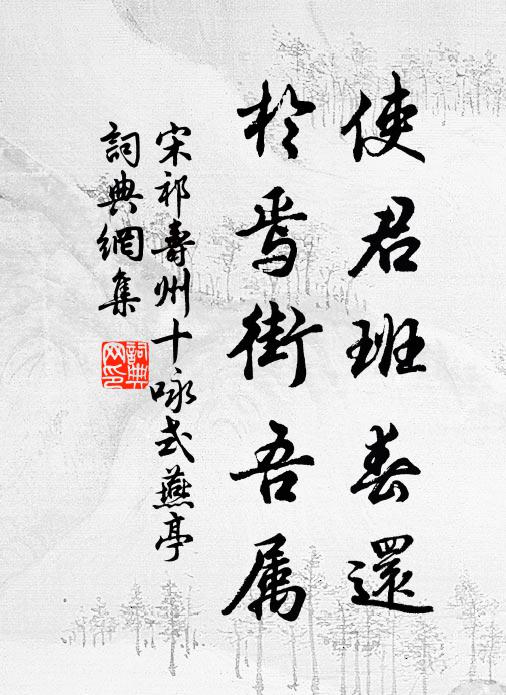 使君班春還
於焉衎吾属
宋祁壽州十咏式燕亭
詞典網集
詞典网印